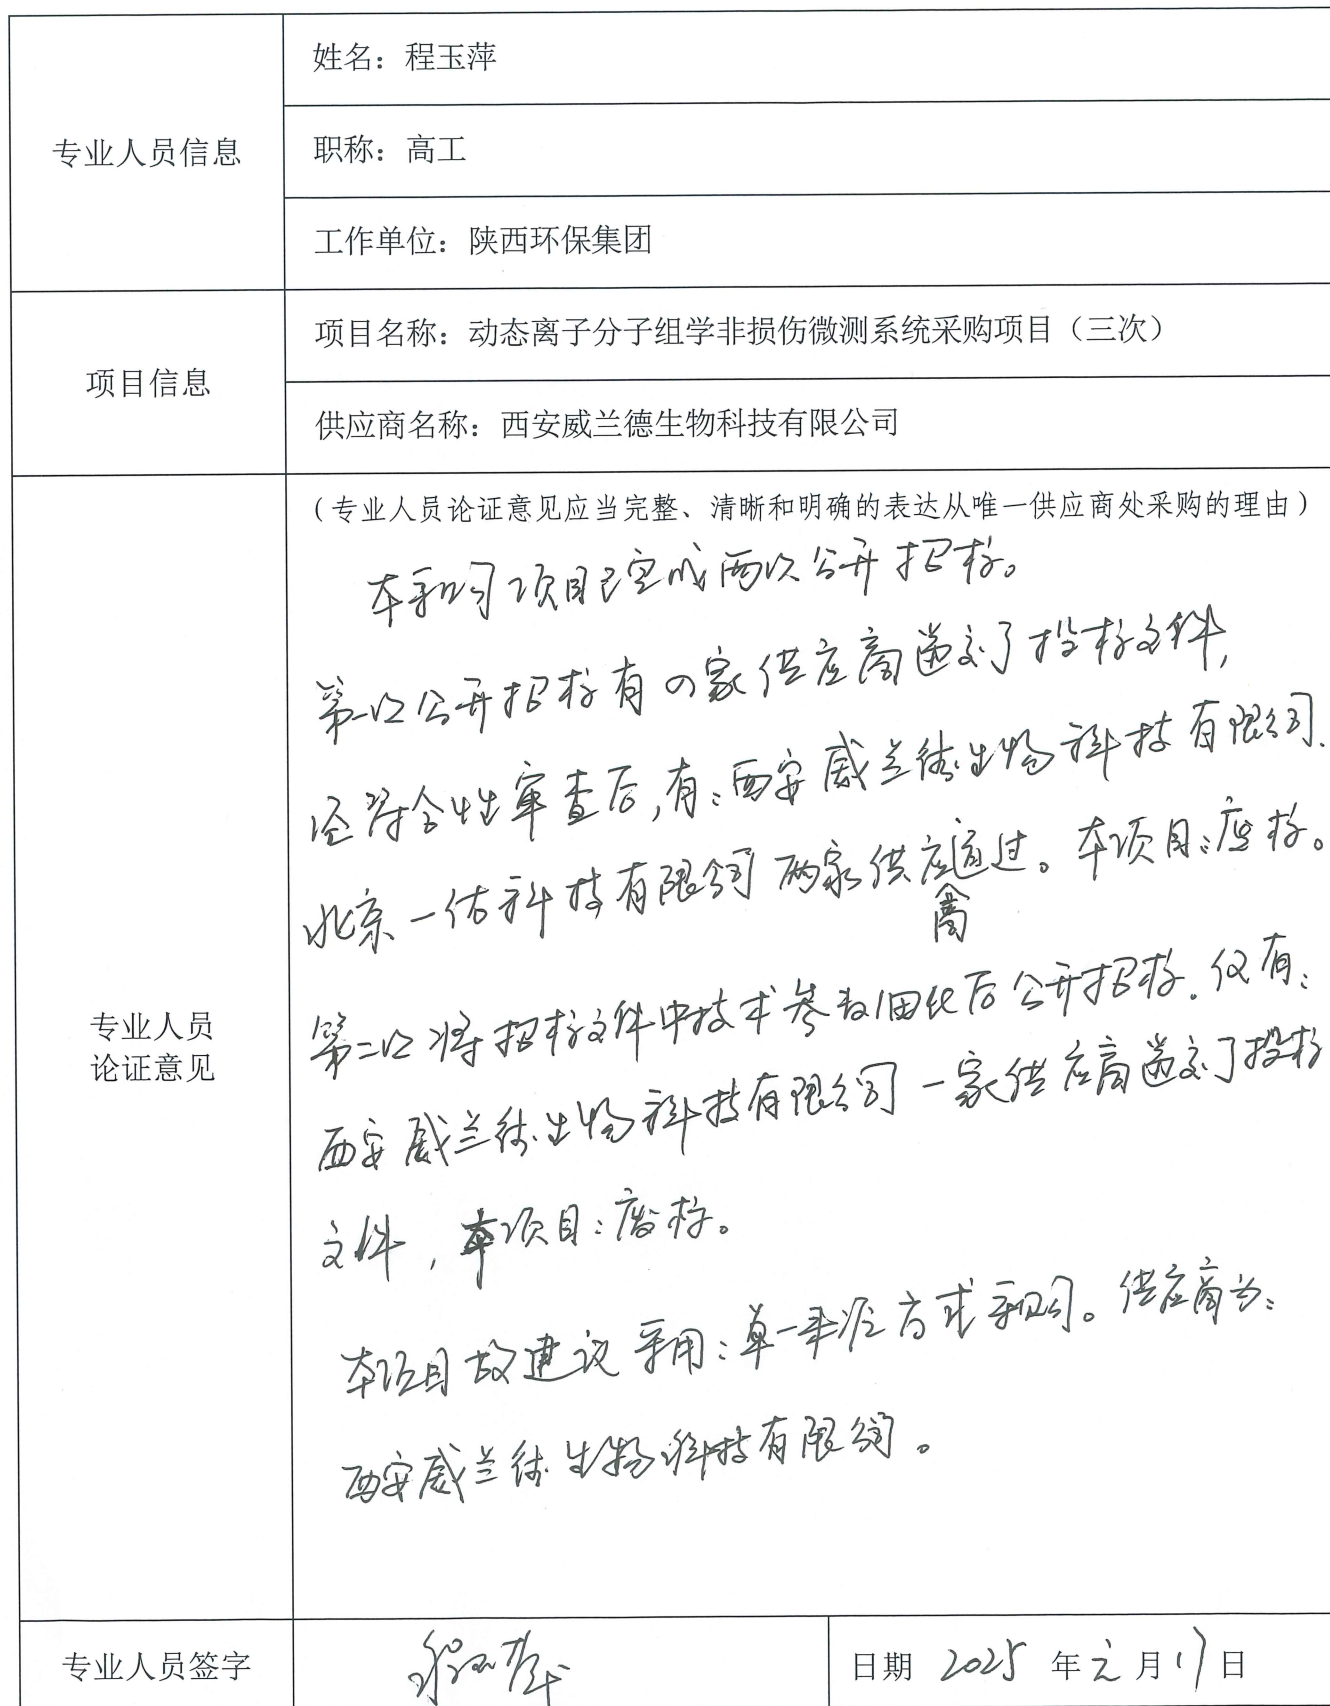 专业人员信息
姓名：程玉萍
职称：高工
工作单位：陕西环保集团
项目信息
项目名称：动态离子分子组学非损伤微测系统采购项目（三次）
供应商名称：西安威兰德生物科技有限公司
专业人员
论证意见
（专业人员论证意见应当完整、清晰和明确的表达从唯一供应商处采购的理由）
本采购项目已完成两次公开招标。
第一次公开招标有 家供应商递交了投标文件，
经符合性审查后，有：西安威兰德生物科技有限公司、
北京一估科技有限公司 两家供应商通过。本项目：废标。
第二次将招标文件中技术参数细化后公开招标。仅有：
西安威兰德生物科技有限公司 一家供应商递交了投标
文件，本项目：废标。
本项目故建议采用：单一来源方式采购。供应商为：
西安威兰德生物科技有限公司。
专业人员签字
程玉萍
日期 2025 年 元 月 17 日